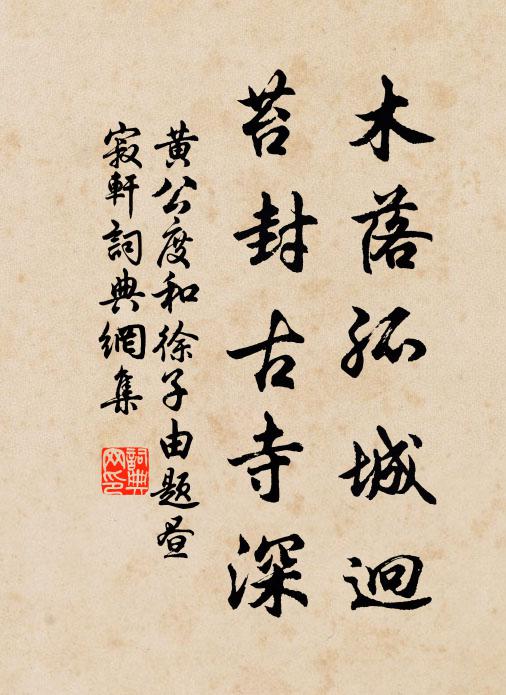 木落孤城迥
苔封古寺深
黄公度和徐子由题昼
寂軒詞典網集
詞典网印